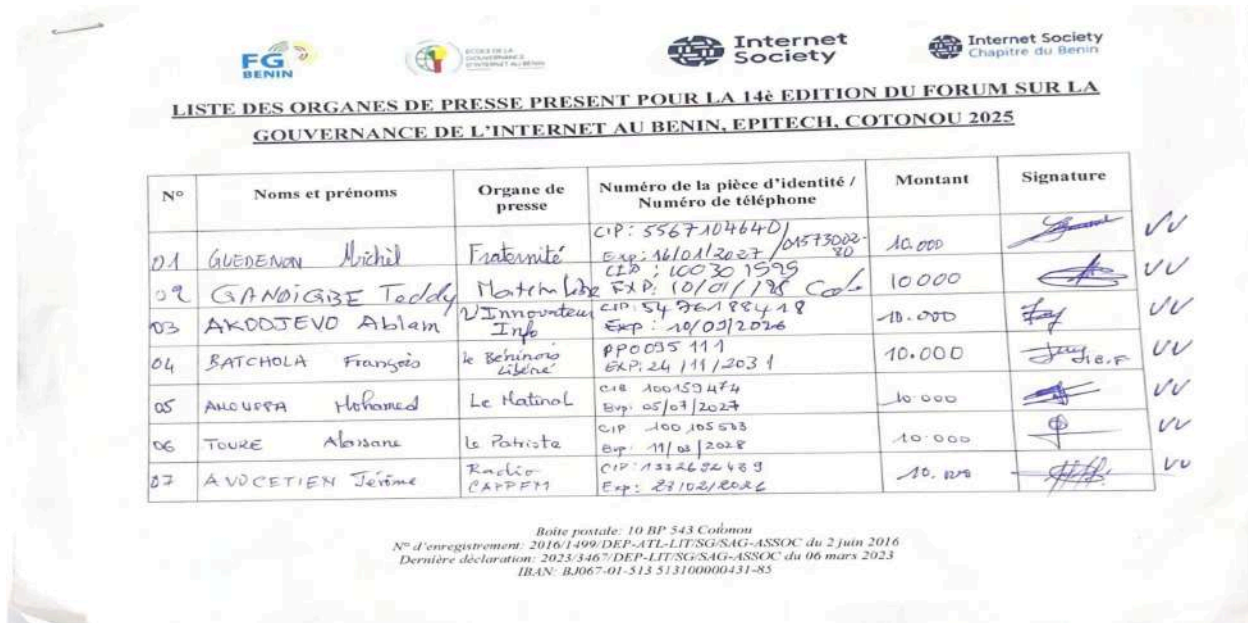 FG
BENIN
ECOLE DE LA
GOUVERNANCE
D'INTERNET AU BENIN
Internet
Society
Internet Society
Chapitre du Benin
LISTE DES ORGANES DE PRESSE PRESENT POUR LA 14è EDITION DU FORUM SUR LA
GOUVERNANCE DE L'INTERNET AU BENIN, EPITECH, COTONOU 2025
N° Noms et prénoms Organe de presse Numéro de la pièce d'identité / Numéro de téléphone Montant Signature
01 GUEDENON Michel Fraternité CIP: 5567104640/ 01573002-80 Exp: 16/01/2027 10.000
02 GANDIGBE Teddy Matin Libre CIP: 100301595 EXP: 10/01/ 10000
03 AKODJEVO Ablam L'Innovateur Info CIP: 5476188418 Exp: 10/09/2026 10.000
04 BATCHOLA François le Béninois Libéré PP0095111 EXP: 24/11/2031 10.000
05 Mohamed Le Matinal CIP 100159474 Exp: 05/07/2027 10.000
06 TOURE Alassane Le Patriote CIP 100105503 Exp: 2028 10.000
07 AVOCETIEN Jérôme Radio CAPPFM CIP: 1332692489 Exp: 10.000
Boîte postale: 10 BP 543 Cotonou
N° d'enregistrement: 2016/1499/DEP-ATL-LIT/SG/SAG-ASSOC du 2 juin 2016
Dernière déclaration: 2023/3467/DEP-LIT/SG/SAG-ASSOC du 06 mars 2023
IBAN: BJ067-01-513 513100000431-85